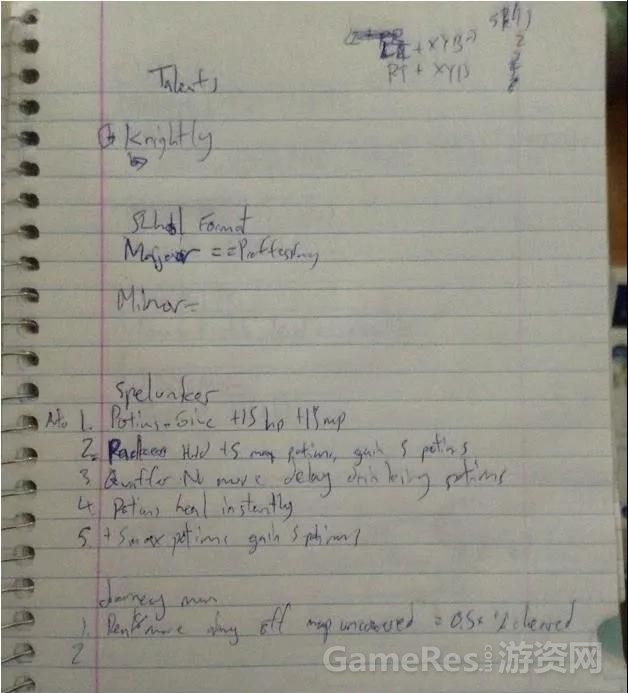 Skills
LT + XYB
RT + XYB
Talents
Knightly
School Format
Major == Proffession
Minor=
Spelunker
No 1. Potions Give +15 hp +15 mp
2. Hold +5 max potions, gain 5 potions
3. Quaffer No more delay drinking potions
4. Potions heal instantly
5. +5 max potions gain 5 potions
Journey man
1. more off map uncovered = 0.5x % cleared
2
GameRes.com游资网